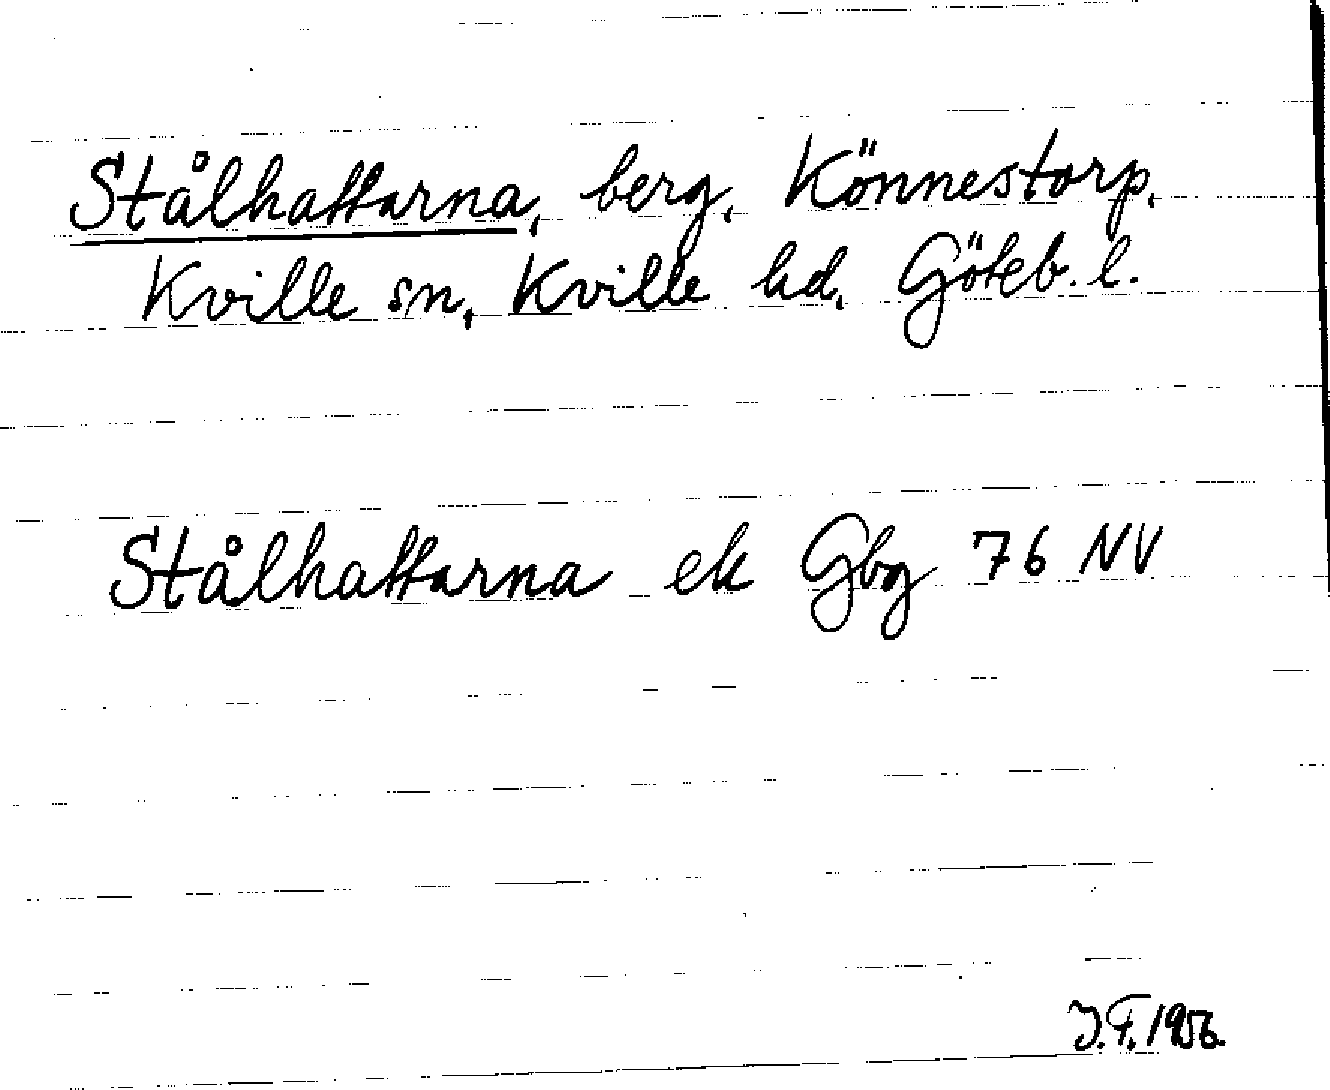 Stålhattarna, berg, Könnestorp,
Kville sn, Kville hd, Göteb. l.
Stålhattarna ek Gbg 76 NV
J.F. 1956.